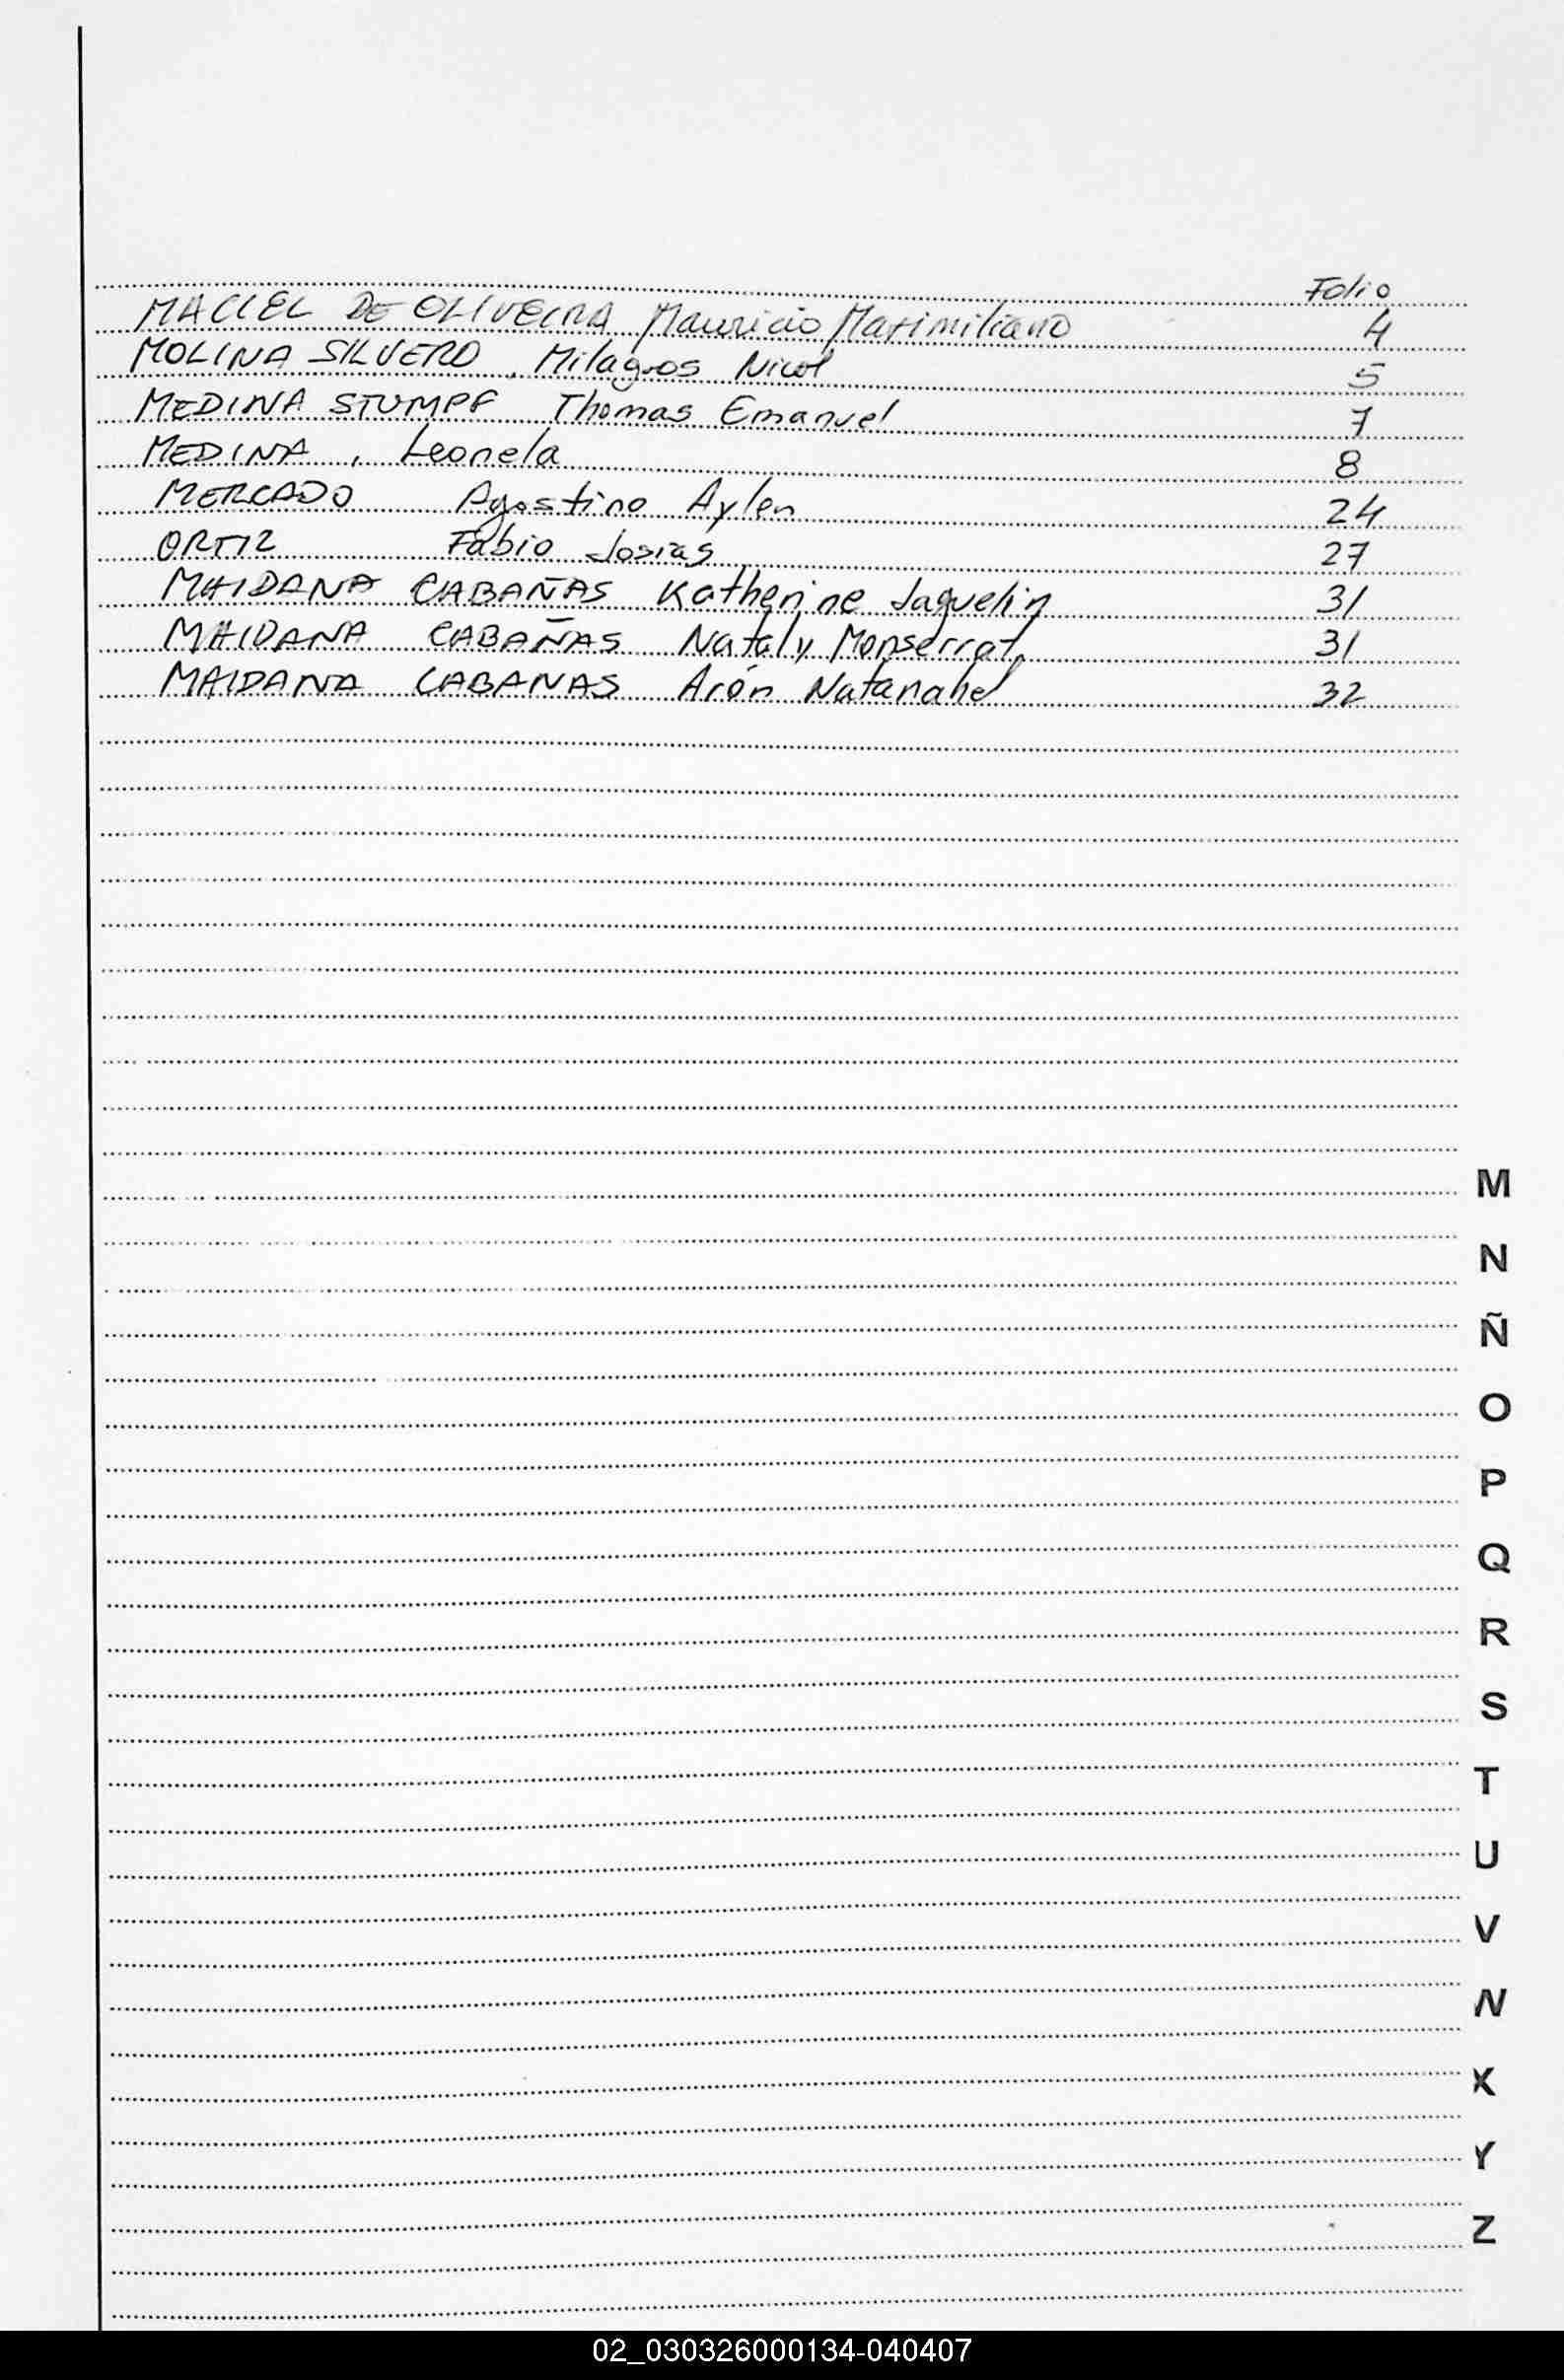 Folio
MACIEL DE OLIVEIRA Mauricio Maximiliano 4
MOLINA SILVERO, Milagros Nicol 5
MEDINA STUMPF Thomas Emanuel 7
MEDINA, Leonela 8
MERCADO Agostino Aylen 24
ORTIZ Fabio Josias 27
MAIDANA CABAÑAS Katherine Jaquelin 31
MAIDANA CABAÑAS Nataly Monserrat 31
MAIDANA CABANAS Arón Natanahel 32
M
N
Ñ
O
P
Q
R
S
T
U
V
X
Y
Z
02_030326000134-040407